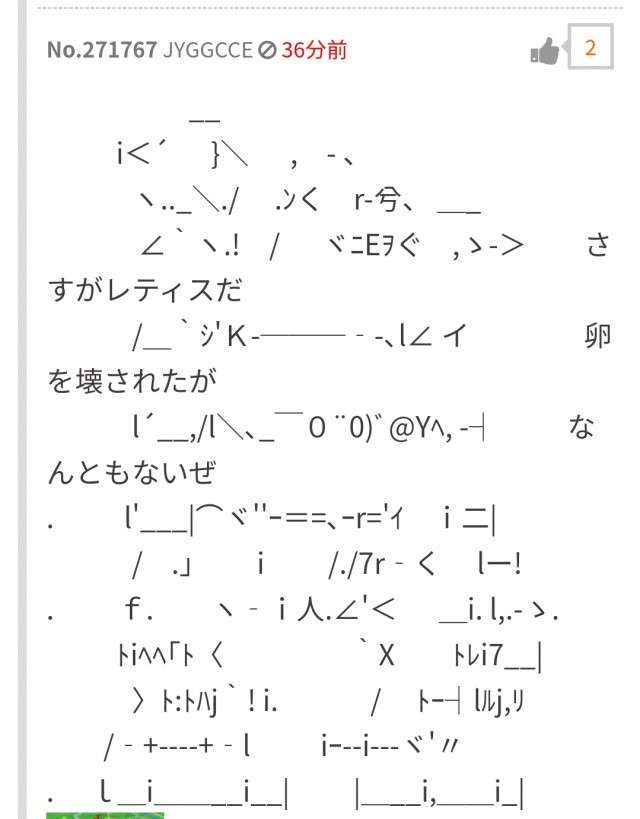 No.271767 JYGGCCE 36分前
2
__
i＜´ }＼ , -、
ヽ.._＼./ .ﾝく r-兮、 __ _
∠｀ヽ.! / ヾﾆEｦぐ ,ゝ-＞ さ
すがレティスだ
/__｀ｼ'Ｋ-─── ‐-､l∠ イ 卵
を壊されたが
l´__,/l＼､_￣Ｏ¨0)ﾞ@Yﾍ, -┤ な
んともないぜ
. l'___|⌒ヾ''ｰ＝=､ｰr='ｨ ｉ 二|
/ .」 i /./7r‐く lー!
. ｆ. ヽ‐ｉ人.∠'＜ __i. l,.-ゝ.
ﾄiﾍﾍ｢ﾄ〈 ｀X ﾄﾚi7__|
〉ﾄ:ﾄﾊj｀! i. / ﾄｰ┤lﾙj,ﾘ
/‐+----+‐l iｰ--i---ヾ'〃
. ｌ__i______i__| |____i,____i_|